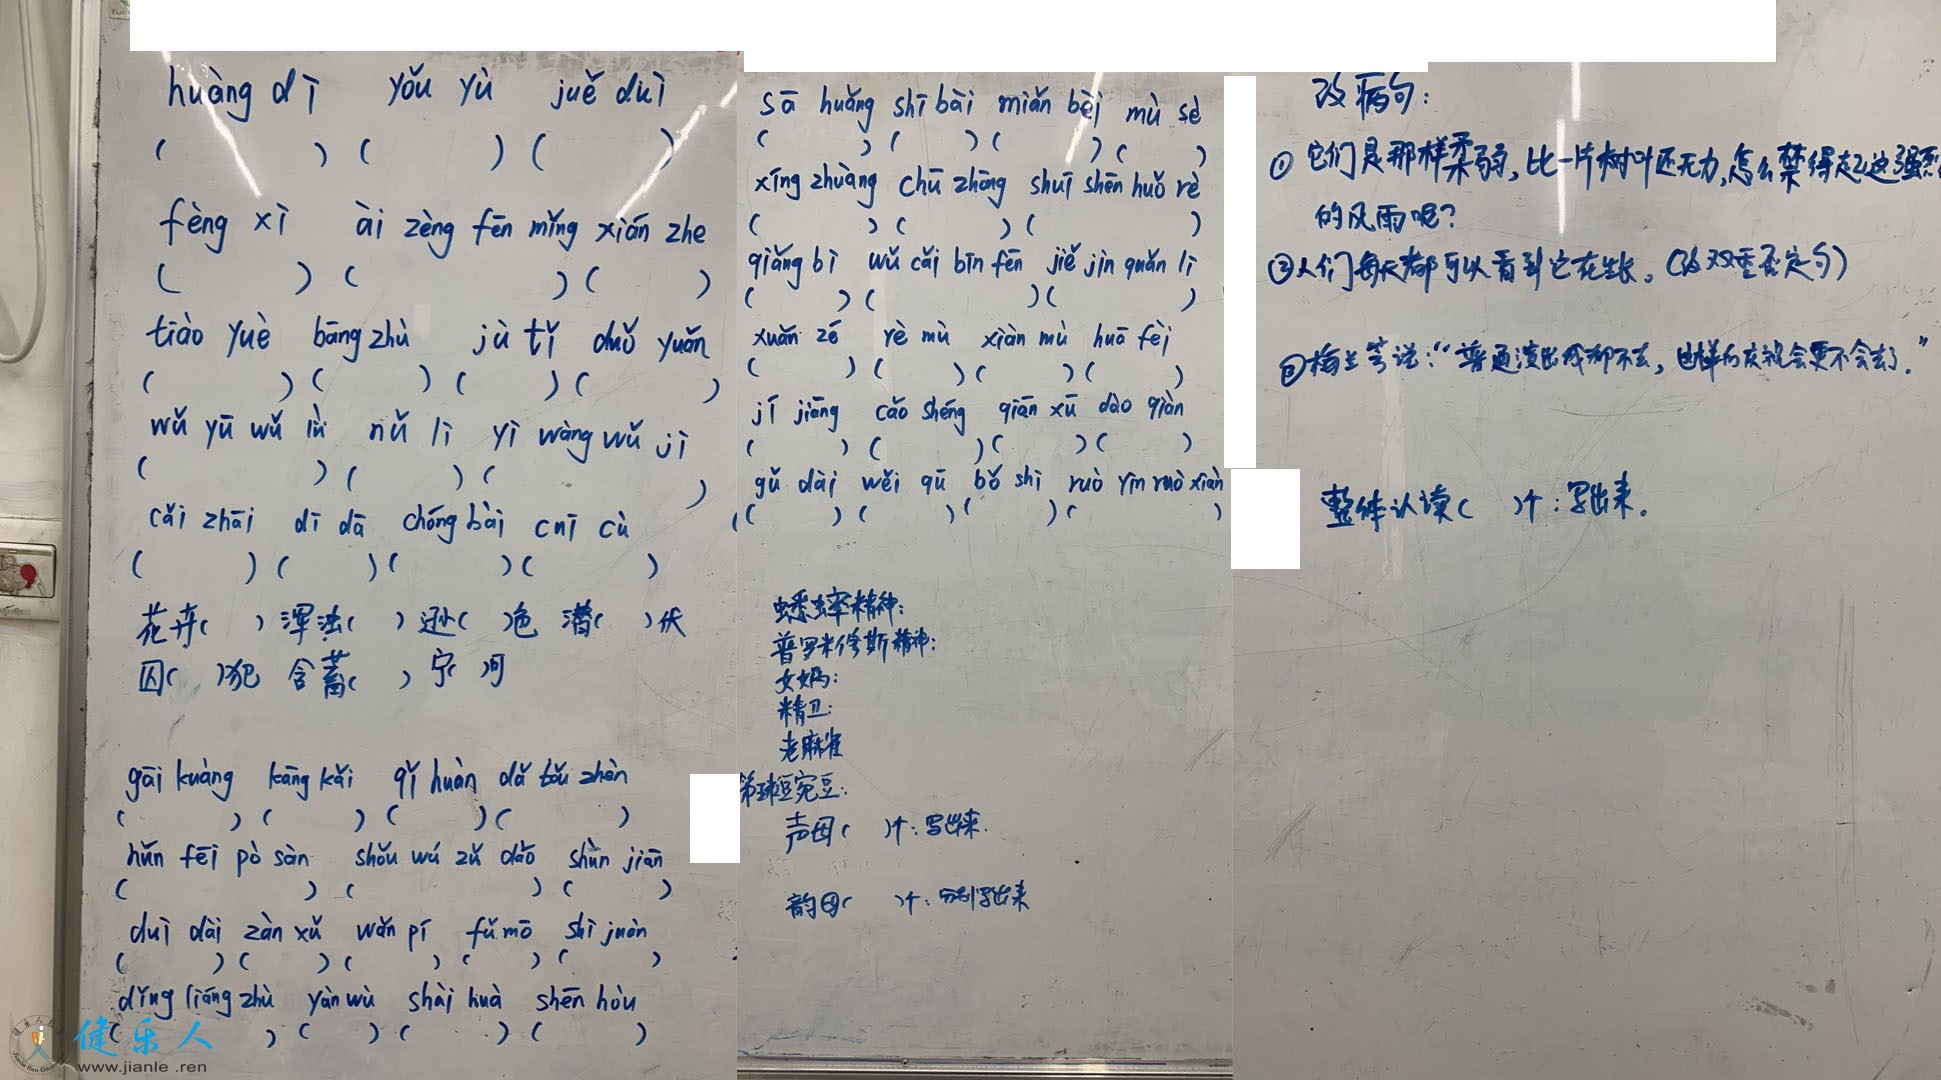 huàng dì yǒu yù juě duì
( ) ( ) ( )
fèng xì ài zèng fēn mǐng xián zhe
( ) ( ) ( )
tiào yuè bāng zhù jù tǐ duǒ yuǎn
( ) ( ) ( ) ( )
wǔ yū wǔ lǜ nǔ lì yì wàng wǔ jì
( ) ( ) ( )
cǎi zhāi dī dā chóng bài cuī cù
( ) ( ) ( ) ( )
花卉( ) 浑浊( ) 逊( )色 潜( )伏
囚( )犯 含蓄( ) 宁( )可
gāi kuàng kāng kǎi qǐ huàn dǎ tǒu zhèn
( ) ( ) ( ) ( )
hǔn fēi pò sàn shǒu wú zǔ dǎo shùn jiān
( ) ( ) ( )
duì dài zàn xǔ wǎn pí fǔ mō shì juàn
( ) ( ) ( ) ( ) ( )
dǐng liáng zhù yàn wù shài huà shēn hòu
( ) ( ) ( ) ( )
健乐人
www.jianle .ren
sā huǎng shī bài miǎn bèi mù sè
( ) ( ) ( ) ( )
xíng zhuàng chū zhōng shuǐ shēn huǒ rè
( ) ( ) ( )
qiǎng bì wǔ cǎi bīn fēn jiě jìn quǎn lì
( ) ( ) ( )
xuǎn zé rè mù xiàn mù huā fèi
( ) ( ) ( ) ( )
jí jiāng cǎo shéng qiān xū dào qiàn
( ) ( ) ( ) ( )
gǔ dài wěi qū bǒ shì ruò yǐn ruò xiàn
( ) ( ) ( ) ( )
蟋蟀精神:
普罗米修斯精神:
女娲:
精卫:
老麻雀
第五粒豌豆:
声母( )个: 写出来.
韵母( )个: 分别写出来
改病句:
① 它们是那样柔弱,比一片树叶还无力,怎么禁得起这强烈
的风雨呢?
②人们每天都可以看到它在生长。(改双重否定句)
③梅兰芳说:“普通演出我都不去,这样的庆祝会更不会去了.”
整体认读( )个: 写出来.